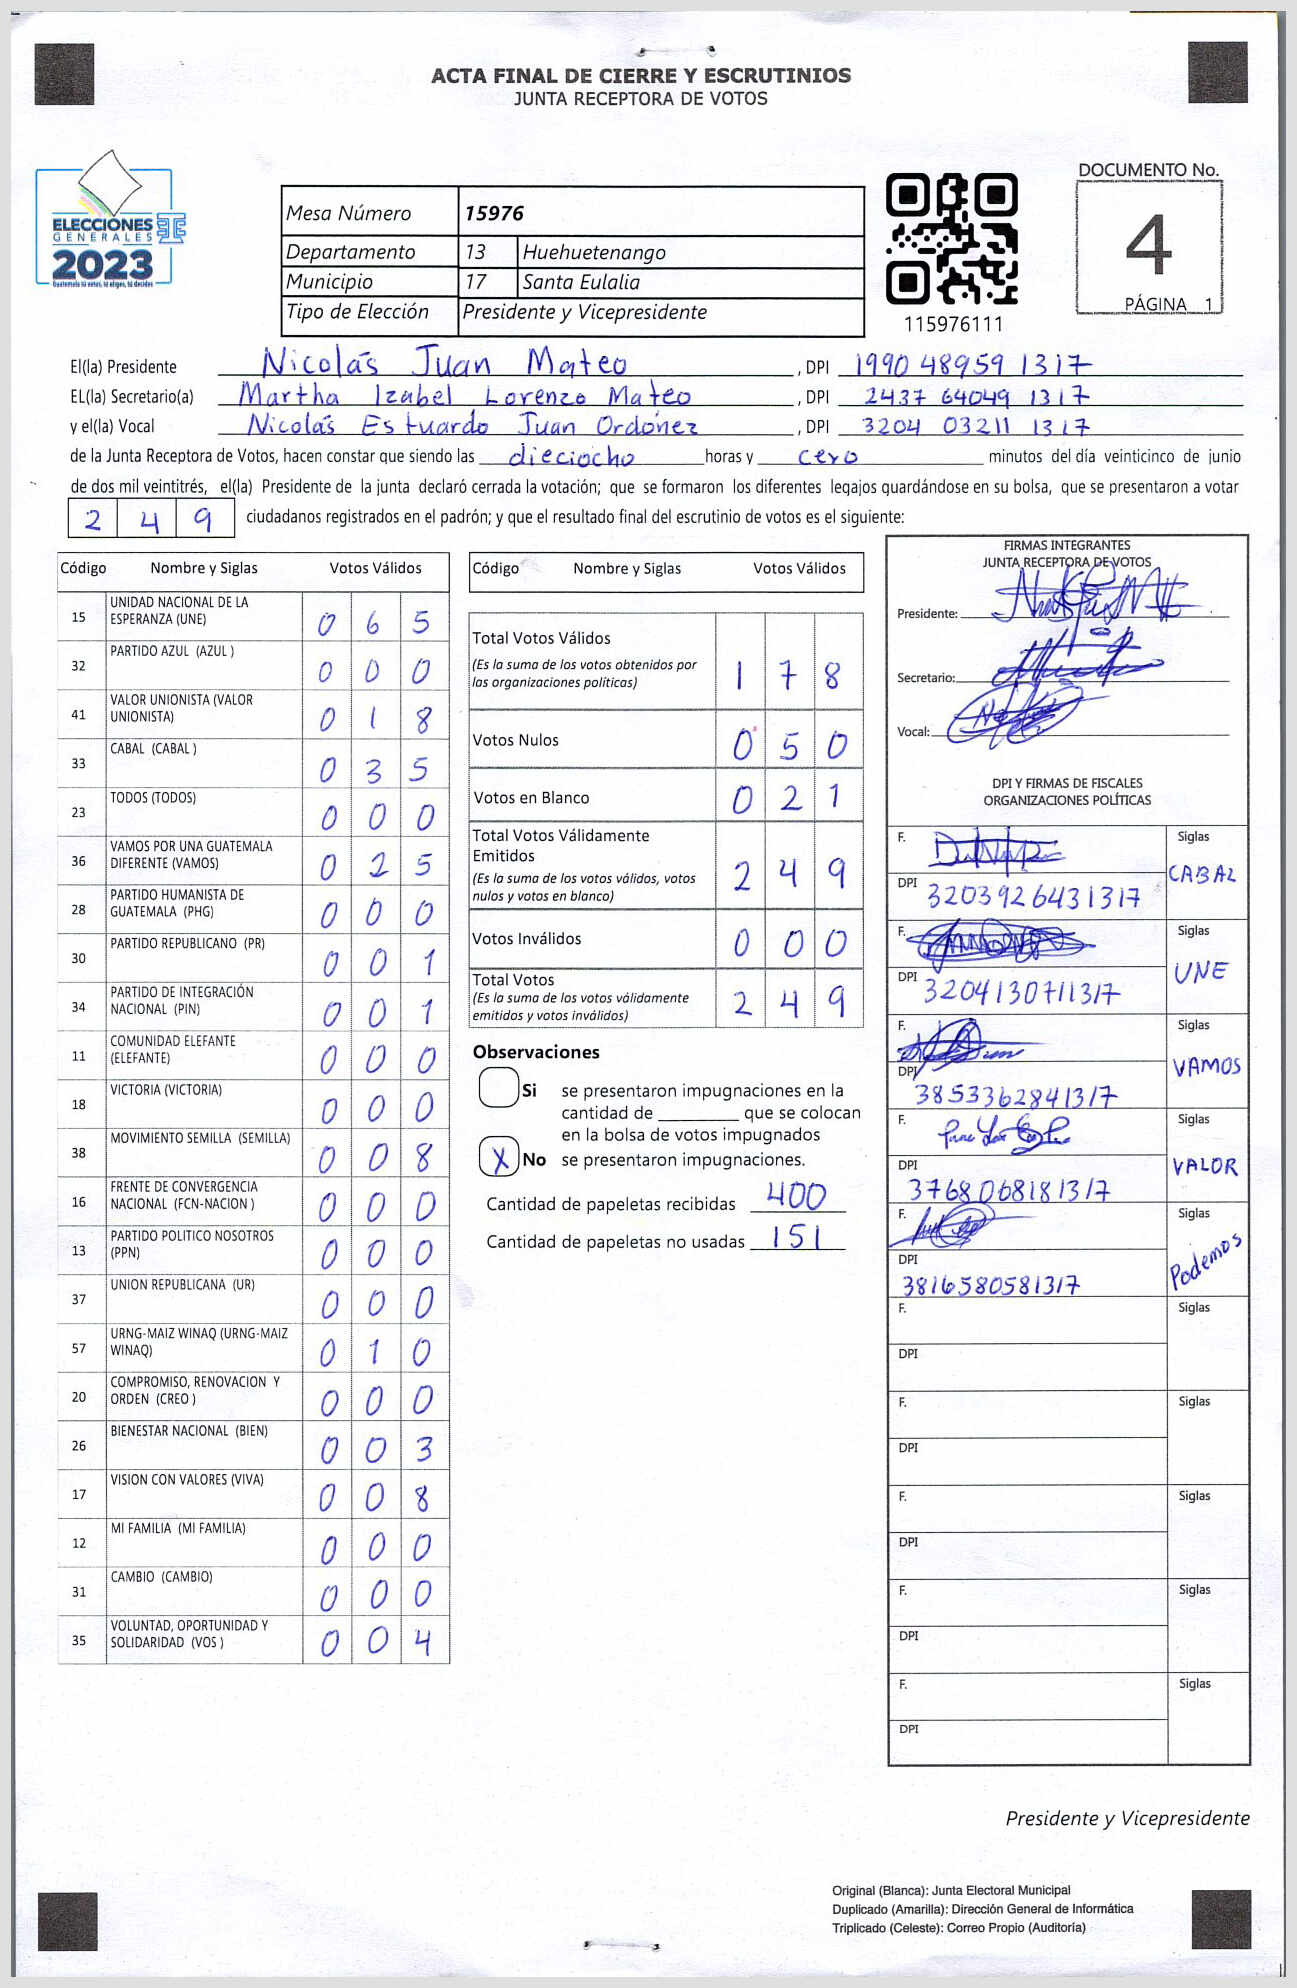 ACTA FINAL DE CIERRE Y ESCRUTINIOS
JUNTA RECEPTORA DE VOTOS
ELECCIONES
GENERALES
2023
Guatemala tú votas, tú eliges, tú decides
DOCUMENTO No.
4
PÁGINA 1
115976111
Mesa Número 15976
Departamento 13 Huehuetenango
Municipio 17 Santa Eulalia
Tipo de Elección Presidente y Vicepresidente
El(la) Presidente Nicolás Juan Mateo, DPI 1990 48959 1317
EL(la) Secretario(a) Martha Izabel Lorenzo Mateo, DPI 2437 64049 1317
y el(la) Vocal Nicolás Estuardo Juan Ordóñez, DPI 3204 03211 1317
de la Junta Receptora de Votos, hacen constar que siendo las dieciocho horas y cero minutos del día veinticinco de junio
de dos mil veintitrés, el(la) Presidente de la junta declaró cerrada la votación; que se formaron los diferentes legajos guardándose en su bolsa, que se presentaron a votar
2 4 9 ciudadanos registrados en el padrón; y que el resultado final del escrutinio de votos es el siguiente:
Código Nombre y Siglas Votos Válidos
15 UNIDAD NACIONAL DE LA
ESPERANZA (UNE) 0 6 5
32 PARTIDO AZUL (AZUL ) 0 0 0
41 VALOR UNIONISTA (VALOR
UNIONISTA) 0 1 8
33 CABAL (CABAL ) 0 3 5
23 TODOS (TODOS) 0 0 0
36 VAMOS POR UNA GUATEMALA
DIFERENTE (VAMOS) 0 2 5
28 PARTIDO HUMANISTA DE
GUATEMALA (PHG) 0 0 0
30 PARTIDO REPUBLICANO (PR) 0 0 1
34 PARTIDO DE INTEGRACIÓN
NACIONAL (PIN) 0 0 1
11 COMUNIDAD ELEFANTE
(ELEFANTE) 0 0 0
18 VICTORIA (VICTORIA) 0 0 0
38 MOVIMIENTO SEMILLA (SEMILLA) 0 0 8
16 FRENTE DE CONVERGENCIA
NACIONAL (FCN-NACION ) 0 0 0
13 PARTIDO POLITICO NOSOTROS
(PPN) 0 0 0
37 UNION REPUBLICANA (UR) 0 0 0
57 URNG-MAIZ WINAQ (URNG-MAIZ
WINAQ) 0 1 0
20 COMPROMISO, RENOVACION Y
ORDEN (CREO ) 0 0 0
26 BIENESTAR NACIONAL (BIEN) 0 0 3
17 VISION CON VALORES (VIVA) 0 0 8
12 MI FAMILIA (MI FAMILIA) 0 0 0
31 CAMBIO (CAMBIO) 0 0 0
35 VOLUNTAD, OPORTUNIDAD Y
SOLIDARIDAD (VOS ) 0 0 4
Código Nombre y Siglas Votos Válidos
Total Votos Válidos
(Es la suma de los votos obtenidos por
las organizaciones políticas) 1 7 8
Votos Nulos 0 5 0
Votos en Blanco 0 2 1
Total Votos Válidamente
Emitidos
(Es la suma de los votos válidos, votos
nulos y votos en blanco) 2 4 9
Votos Inválidos 0 0 0
Total Votos
(Es la suma de los votos válidamente
emitidos y votos inválidos) 2 4 9
Observaciones
Si se presentaron impugnaciones en la
cantidad de ________ que se colocan
en la bolsa de votos impugnados
X No se presentaron impugnaciones.
Cantidad de papeletas recibidas 400
Cantidad de papeletas no usadas 151
FIRMAS INTEGRANTES
JUNTA RECEPTORA DE VOTOS
Presidente:
Secretario:
Vocal:
DPI Y FIRMAS DE FISCALES
ORGANIZACIONES POLÍTICAS
F. Siglas
CABAL
DPI 3203926431317
F. Siglas
UNE
DPI 3204130711317
F. Siglas
VAMOS
DPI 3853362841317
F. Siglas
VALOR
DPI 3768068181317
F. Siglas
Podemos
DPI 3816580581317
F. Siglas
DPI
F. Siglas
DPI
F. Siglas
DPI
F. Siglas
DPI
F. Siglas
DPI
Presidente y Vicepresidente
Original (Blanca): Junta Electoral Municipal
Duplicado (Amarilla): Dirección General de Informática
Triplicado (Celeste): Correo Propio (Auditoría)